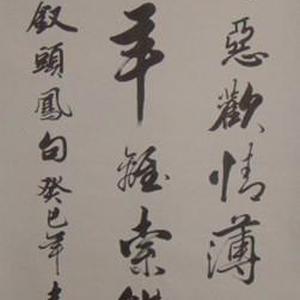 惡歡情薄
年離索
釵頭鳳句癸巳年